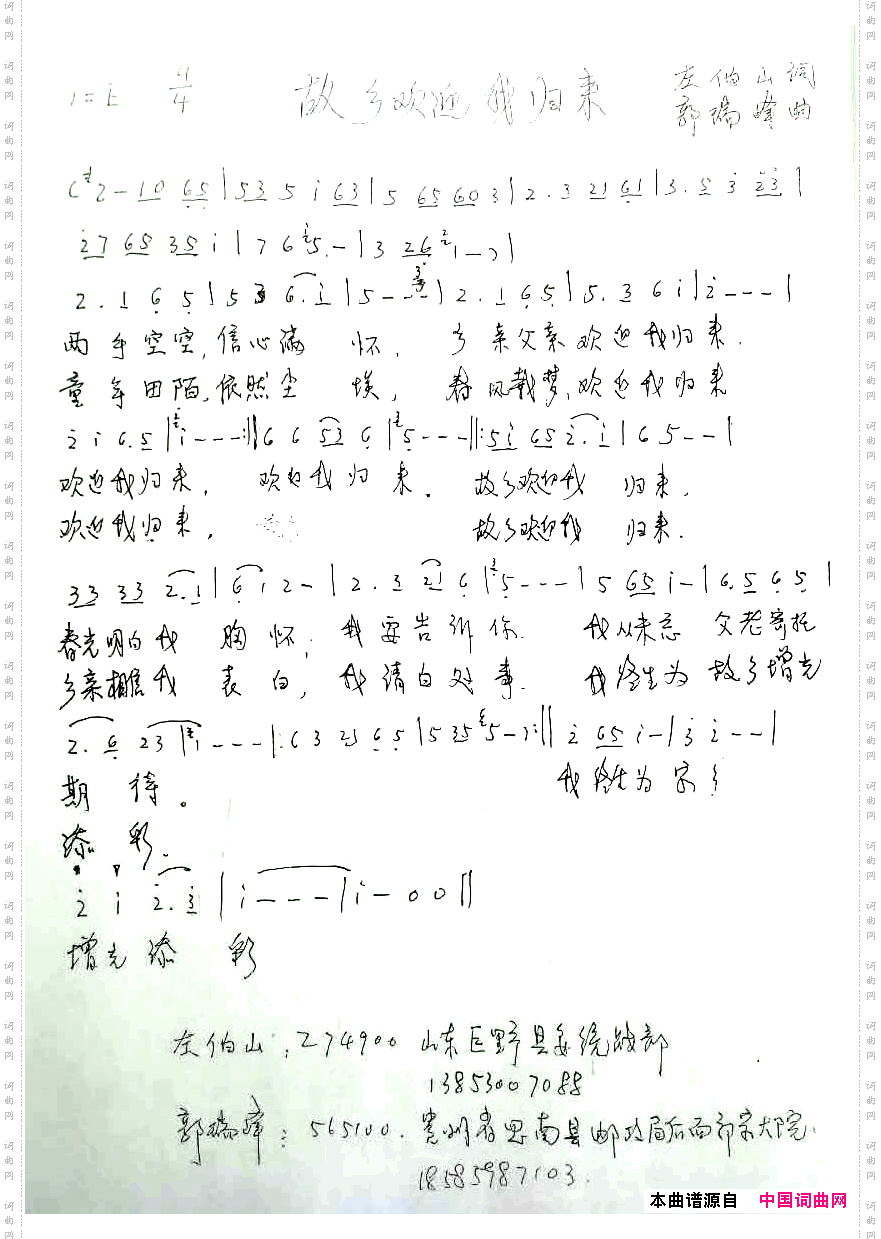 1=E 4/4 故乡欢迎我归来 左伯山词
郭瑞峰曲
(2-10 65|535i63|565603|2.32161|3.5323|
276535i|765.-|3261-)|
2.165|536.i|5---|2.165|5.36i|2---|
两手空空,信心满怀,乡亲父亲欢迎我归来.
童年田陌,依然尘埃,春风载梦,欢迎我归来
2i6.5|i---:||66536|5---||:5i652.i|65--|
欢迎我归来,欢迎我归来.故乡欢迎我归来,
欢迎我归来,故乡欢迎我归来.
33332.1|612-|2.3216|5---|565i-|6.565|
春光明白我胸怀;我要告诉你.我从未忘父老寄托
乡亲相信我表白,我请白处事.我终生为故乡增光
2.623|1---|:632365|5355-):||2 65i-|32--|
期待。我终生为家乡
添彩.
2i2.3|i---|i-00||
增光添彩
左伯山:274900 山东巨野县委统战部
13853007088
郭瑞峰:565100.贵州省思南县邮政局后面郭家大院.
18585987103.
本曲谱源自 中国词曲网
词曲网